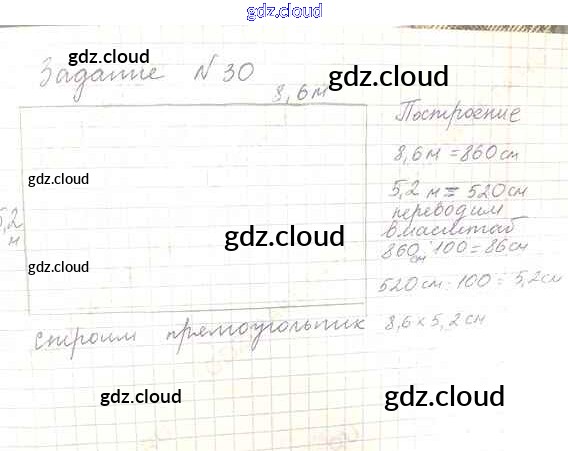 gdz.cloud
Задание N 30
gdz.cloud
gdz.cloud
8,6 м
Построение
8,6 м = 860 см
gdz.cloud
5,2 м = 520 см
5,2 м
переводим
в масштаб
gdz.cloud
860 см : 100 = 86 см
gdz.cloud
520 см : 100 = 5,2 см
строим прямоугольник
8,6 × 5,2 см
gdz.cloud
gdz.cloud